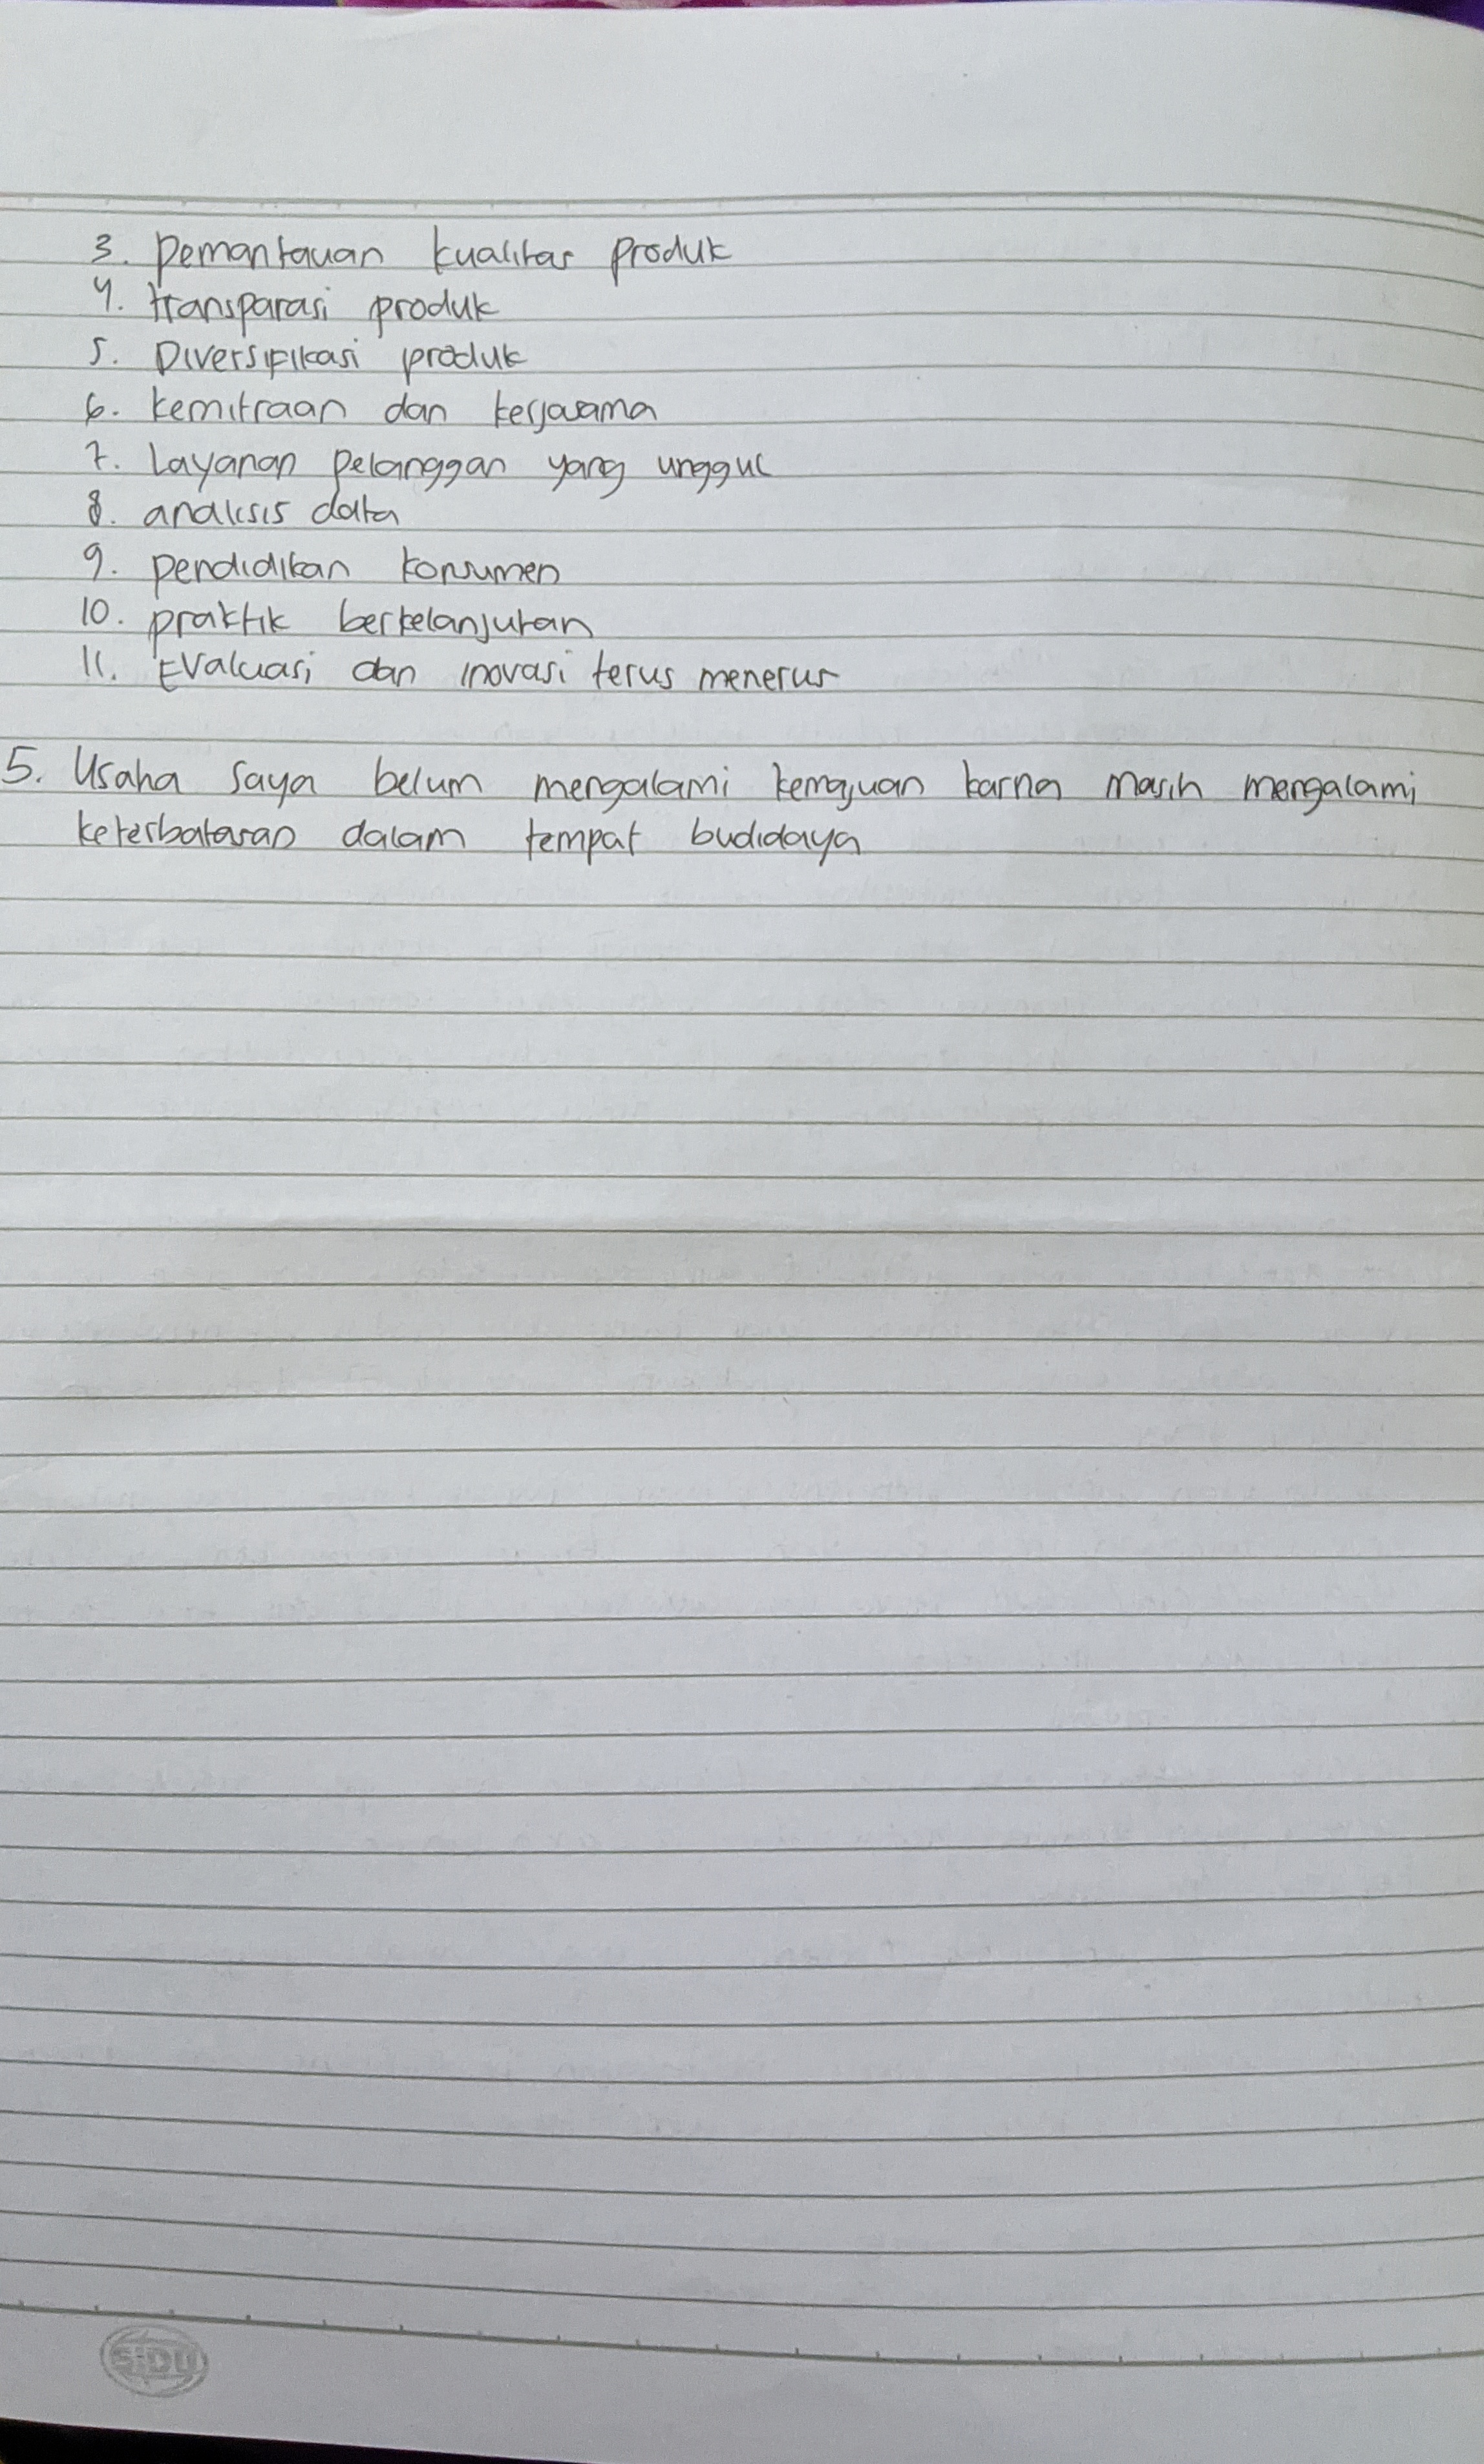 3. Pemantauan kualitas produk
4. transparasi produk
5. Diversifikasi produk
6. kemitraan dan kerjasama
7. Layanan pelanggan yang unggul
8. analisis data
9. pendidikan konsumen
10. praktik berkelanjutan
11. Evaluasi dan inovasi terus menerus
5. Usaha saya belum mengalami kemajuan karna masih mengalami
keterbatasan dalam tempat budidaya
SiDU